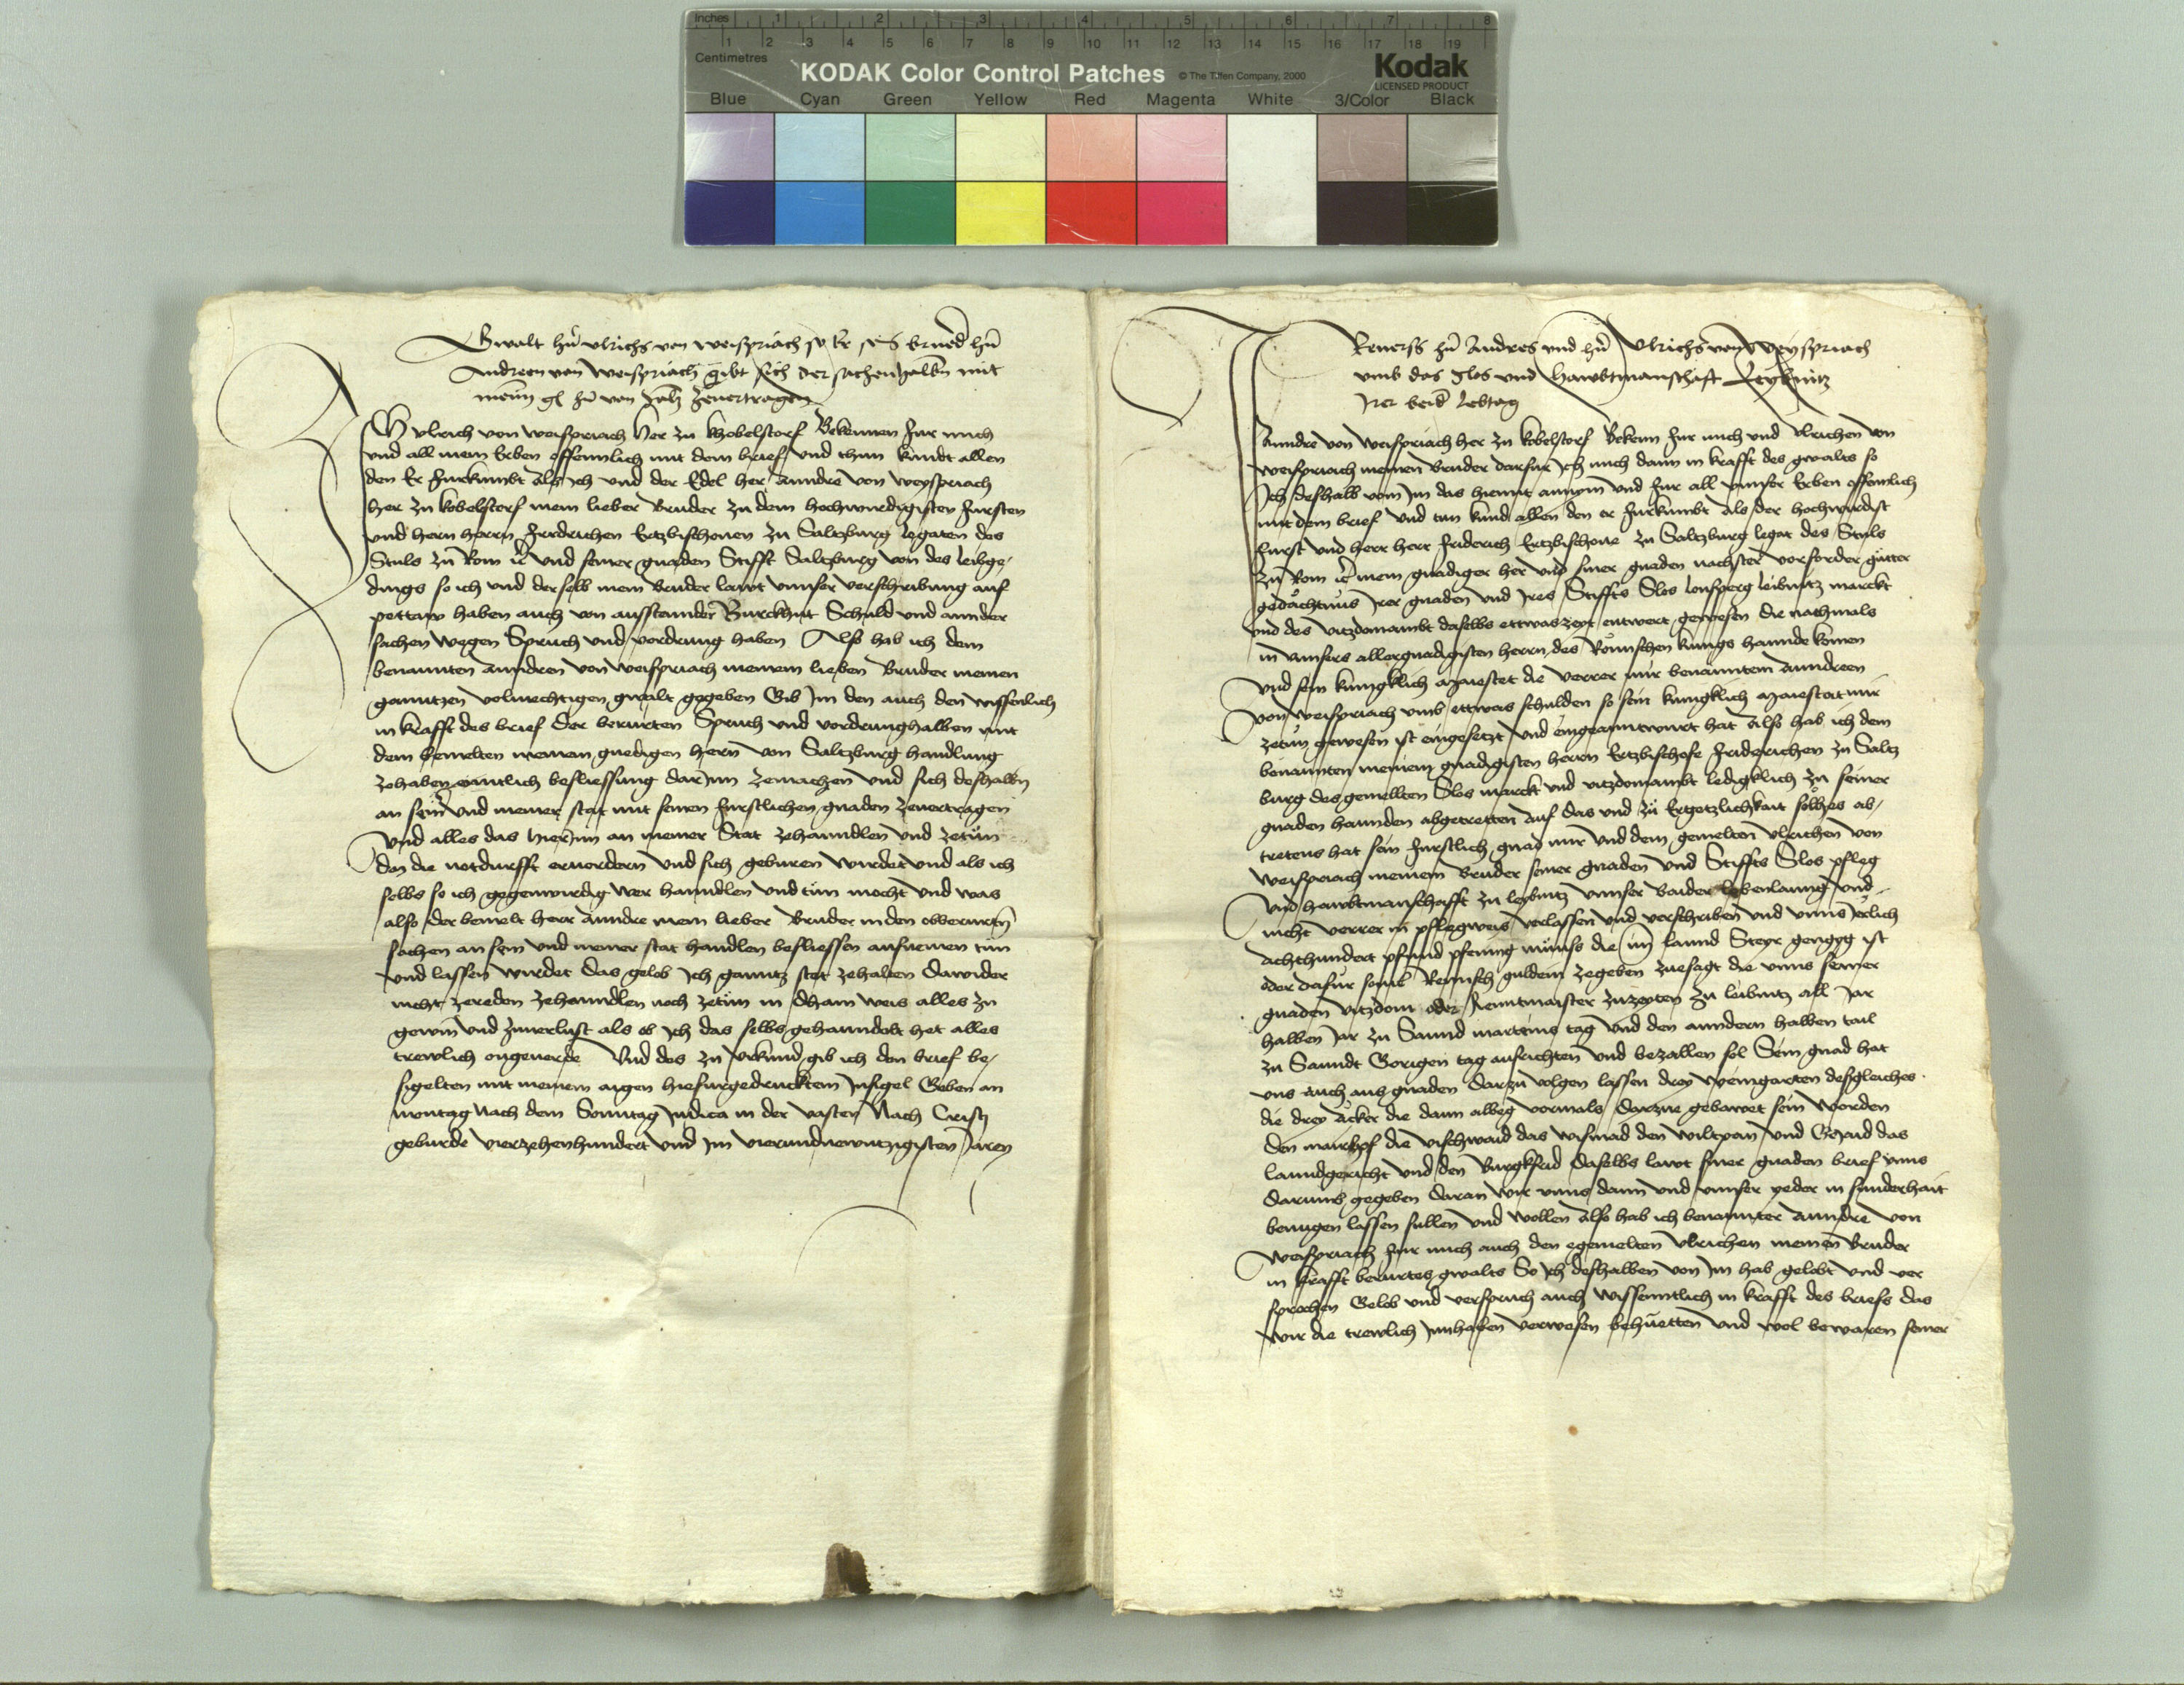 Inches 1 2 3 4 5 6 7 8
1 2 3 4 5 6 7 8 9 10 11 12 13 14 15 16 17 18 19
Centimetres
KODAK Color Control Patches © The Tiffen Company, 2000 Kodak
LICENSED PRODUCT
Blue Cyan Green Yellow Red Magenta White 3/Color Black
Gwalt hn̄ Ulrichs von weispriach so er brued hn̄
Andreen von Weispriach gibt sich der sachenhalbn mit
meinn gl hn̄ von zeuertragen
Ich Ulrich von weispriach Her zu khobelstorf Bekennen fur mich
und all mein Erben offennlich mit dem brief und thun kundt allen
den Er furkumbt Als ich und der Edel her Anndre von weyspriach
her zu kobelstorf mein lieber Bruder zu dem hochwirdigisten fursten
und hern herrn fridrichen Ertzbischouen zu Saltzburg legaten des
Stuls zu Rom ꝛc und seiner gnaden Stifft Saltzburg von des leibge-
dings so ich und derselb mein Bruder lawt unnser verschreibung auf
pettaw haben auch von ausstannder Burckhut Schuld und annder
sachen wegen Spruch und vordrung haben Also hab ich dem
benannten Anndreen von weispriach meinem lieben Bruder meinen
ganntzen volmechtigen gwalt gegeben Gib Im den auch den wissenlich
in krafft des brief der berurten Spruch und vordrunghalben mit
dem bemelten meinem gnedigen hern von Saltzburg handlung
zehaben entlich besliessung darInn zemachen und sich deshalbn
an sein und meiner stat mit seinen furstlichen gnaden zeuertragen
Und alles das hierInn an meiner Stat zehanndlen und zetun
das die notdurfft eruordern und sich geburen wurdet und als ich
selbs so ich gegenwurdig wer hanndlen und tun mocht und was
also der bemelt herr Anndre mein lieber Bruder in den obberurtn
sachen an sein und meiner stat handlen besliessen aufnemen tun
und lassen wurdet das gelob Ich ganntz stet zehalten dawider
nicht zereden zehanndlen noch zetun in dhain weis alles zu
gewin und zuuerlust als ob Ich das selbs gehanndelt het alles
trewlich ongeuerde Und des zu urkund gib ich den brief be-
sigelten mit meinem aigen hiefurgedrucktem Insigel Geben an
montag Nach dem Sonntag Judica in der vasten Nach Cristj
geburde vierzehenhundert und Im vierundnewntzigisten Jaren
Reuerss hn̄ Andres und hn̄ Ulrichs von Weyspriach
umb das Slos und Hawbtmanschafft Leybnitz
Irer beid lebtag
Ich Anndre von weispriach her zu kobelstorf Bekenn fur mich und Ulrichen von
weispriach meinen Bruder darfur Ich mich dann in krafft des gwalts so
Ich deshalb vom Im das hiemit annym und fur all unnser Erben offennlich
mit dem brief und tun kund allen den er furkumbt Als der hochwirdist
furst und herr herr friderich Ertzbischoue zu Saltzburg legat des Stuls
zu Rom ꝛc mein gnadiger her und siner gnaden nachster vorforder guter
gedachtnus Irer gnaden und Ires Stiffts Slos leibnitz marckt
und des vitzdomambt daselbs ettwas zeyt entwert gewesen die nachmals
in unnsers allergnedigisten herrn des Romischen kunigs hannde komen
Und sein kunigklich Maiestet die verrer mir benanntem Anndreen
von weispriach umb ettwas schulden so sein kunigklich Maiestat mir
zetun gewesen ist eingesetzt und eingeanntwurt hat Also hab ich dem
benannten meinem gnedigisten herrn Ertzbischofe friderichen zu Saltz
burg des gemellten Slos marckt und vitzdomambt ledigklich zu seiner
gnaden hannden abgetretten Auf das und zu Ergetzlichkait solhes ab-
tretens hat sein furstlich gnad mir und dem gemelten Ulrichen von
weispriach meinem Bruder seiner gnaden und Stiffts Slos pfleg
und hawbtmanschafft zu leibnitz unnser baider lebenlanng und
nicht verrer in pflegweis verlassen und verschriben und unns Jerlich
achthundert pfund pfening munss die im lannd Steyr genngig ist
oder dafur souil Reinisch gulden zegeben zuesagt die unns seiner
gnaden vitzdom oder Renntmaister zuzeyten zu leibnitz all Jar
halben Jar zu Sannd marttins tag und den anndern halben tail
zu Sanndt Gorigen tag ausrichten und bezallen sol Sein gnad hat
uns auch aus gnaden darzu volgen lassen drey weingarten desgleichs
die drey Acker die dann alweg vormals darzue gebawet sein worden
den mairhof die vischwaid das wismad den wiltpan und Gejaid das
lanndgericht und den Burgkfrid daselbs lawt siner gnaden brief unns
darumb gegeben daran wir unns dann und unnser yeder in sunderhait
benugen lassen sullen und wollen Also hab ich benannter Anndre von
Weispriach fur mich auch den egemelten Ulrichen meinen Bruder
in krafft berurtes gwalts So Ich deshalben von Im hab gelobt und ver
sprochen Gelob und versprich auch wissenntlich in krafft des briefs das
wir die trewlich Innhaben verwesen behuetten und wol bewaren seiner